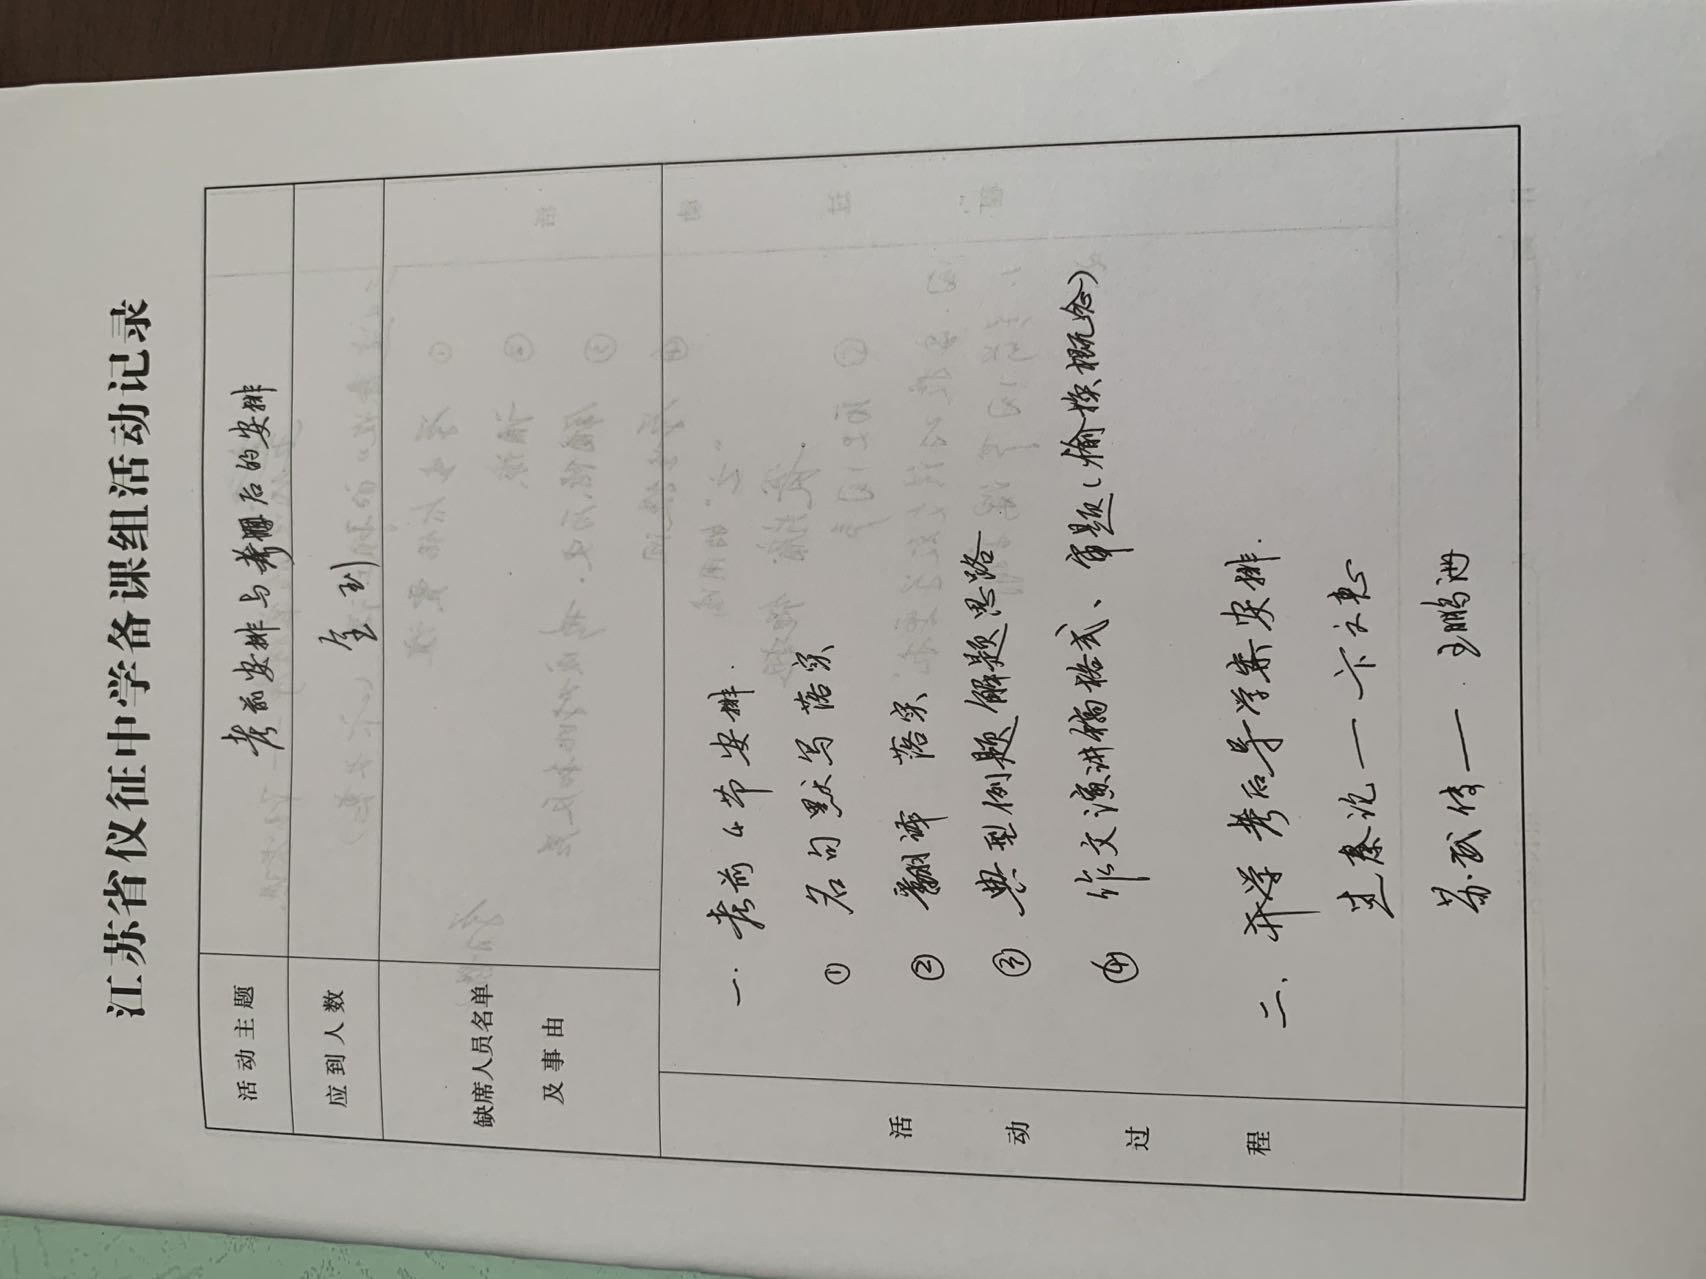 江苏省仪征中学备课组活动记录
活动主题 考前安排与考后的安排
应到人数 全到
缺席人员名单
及事由
活动过程
一.考前4节安排.
① 名句默写 落实
② 翻译 落实
③ 典型例题解题思路
④ 作文演讲稿格式、审题(偷换概念)
二、开学考后导学案安排.
过秦论——卞文惠
苏武传——王鹏